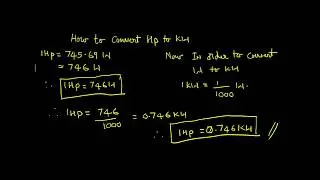 How to Convert Hp to KW
1Hp = 745.69 W
1 ≈ 746 W
∴ 1Hp = 746W
∴ 1Hp = 746/1000 = 0.746 KW
Now In order to Convert
W to KW
1KW = 1/1000 W.
∴ 1Hp = 0.746KW //